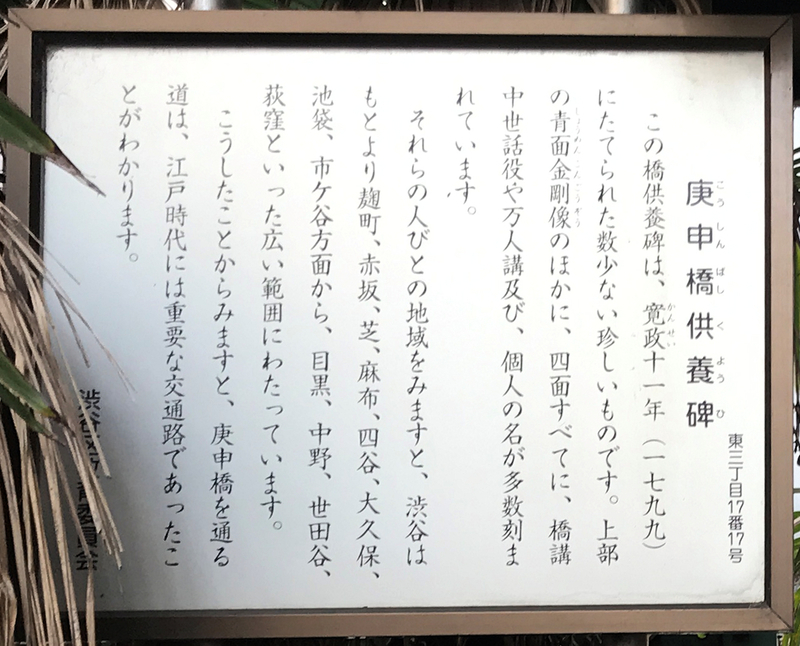 庚申橋供養碑
こうしんばしくようひ
東三丁目17番17号
この橋供養碑は、寛政十一年（一七九九）
かんせい
にたてられた数少ない珍しいものです。上部
の青面金剛像のほかに、四面すべてに、橋講
しょうめんこんごうぞう
中世話役や万人講及び、個人の名が多数刻ま
れています。
それらの人びとの地域をみますと、渋谷は
もとより麹町、赤坂、芝、麻布、四谷、大久保、
池袋、市ケ谷方面から、目黒、中野、世田谷、
荻窪といった広い範囲にわたっています。
こうしたことからみますと、庚申橋を通る
道は、江戸時代には重要な交通路であったこ
とがわかります。
渋谷区教育委員会